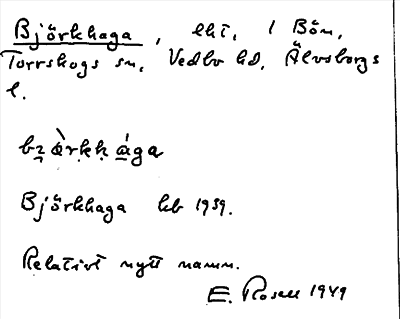 Björkhaga, lht, i Bön,
Torrskogs sn, Vedbo hd, Älvsborgs
l.
bɿ̀ärkḥága
Björkhaga kb 1939.
Relativt nytt namn.
E. Rosell 1949